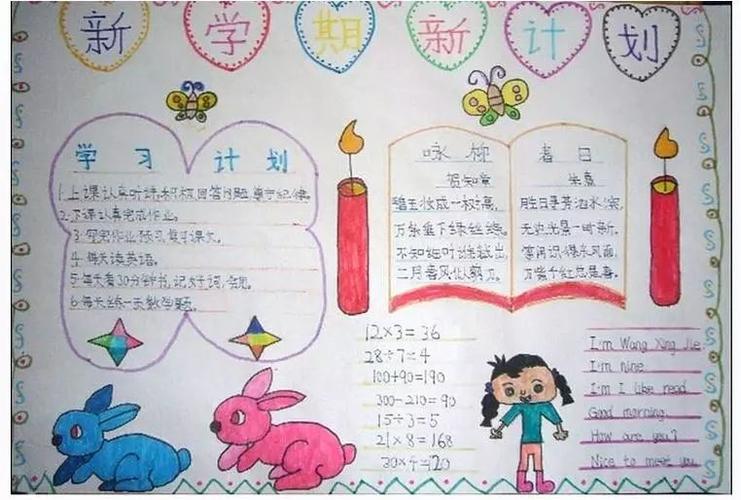 新学期新计划
学习计划
1.上课认真听讲,积极回答问题,遵守纪律。
2.下课认真完成作业。
3.写完作业预习,复习课文。
4.每天读英语。
5.每天看30分钟书,记好词,好句。
6.每天练一页数学题。
咏柳
贺知章
碧玉妆成一树高,
万条垂下绿丝绦。
不知细叶谁裁出,
二月春风似剪刀。
春日
朱熹
胜日寻芳泗水滨,
无边光景一时新。
等闲识得东风面,
万紫千红总是春。
12×3=36
28÷7=4
100+90=190
300-210=90
15÷3=5
21×8=168
30×4=120
I'm Wang Xing Jie
I'm nine
I'm I like read
Good morning.
How are you?
Nice to meet you